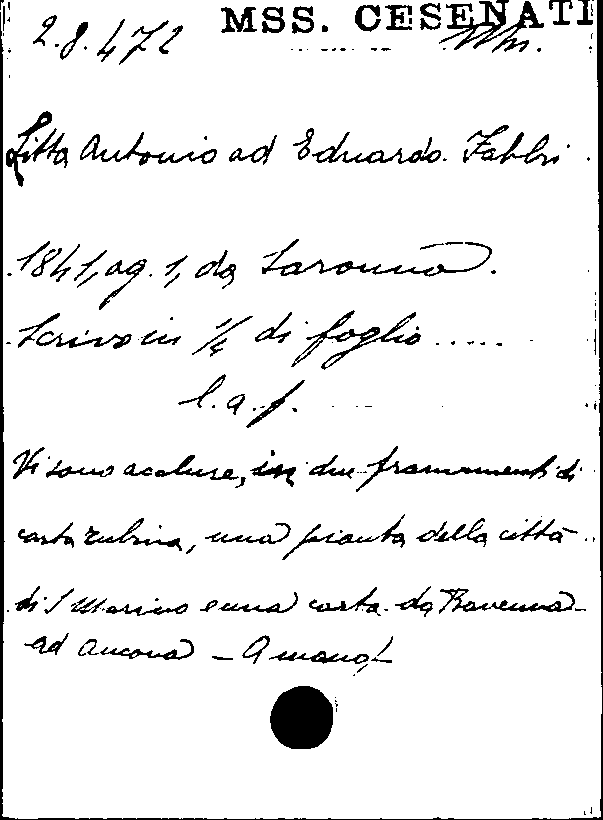 MSS. CESENATI
2.8.472
Litta Antonio ad Eduardo Fabbri.
1841, ag. 1, da Saronno.
Scrivo in 1/4 di foglio .....
l. a. f.
Vi sono accluse, in due frammenti di
carta, una pianta della città
di S Marino e una carta da Ravenna
ad Ancona -